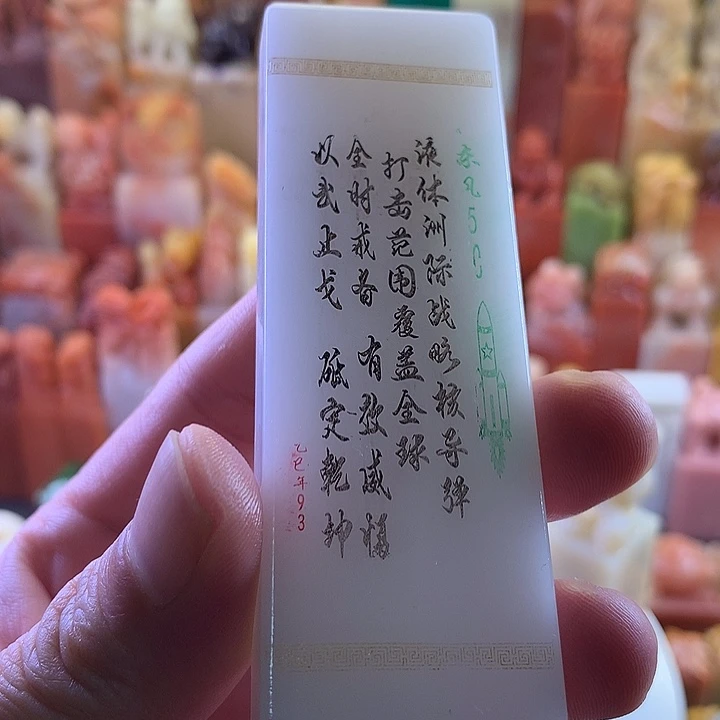 东风5C
液体洲际战略核导弹
打击范围覆盖全球
全时戒备 有效威慑
以武止戈 砥定乾坤
乙巳年93